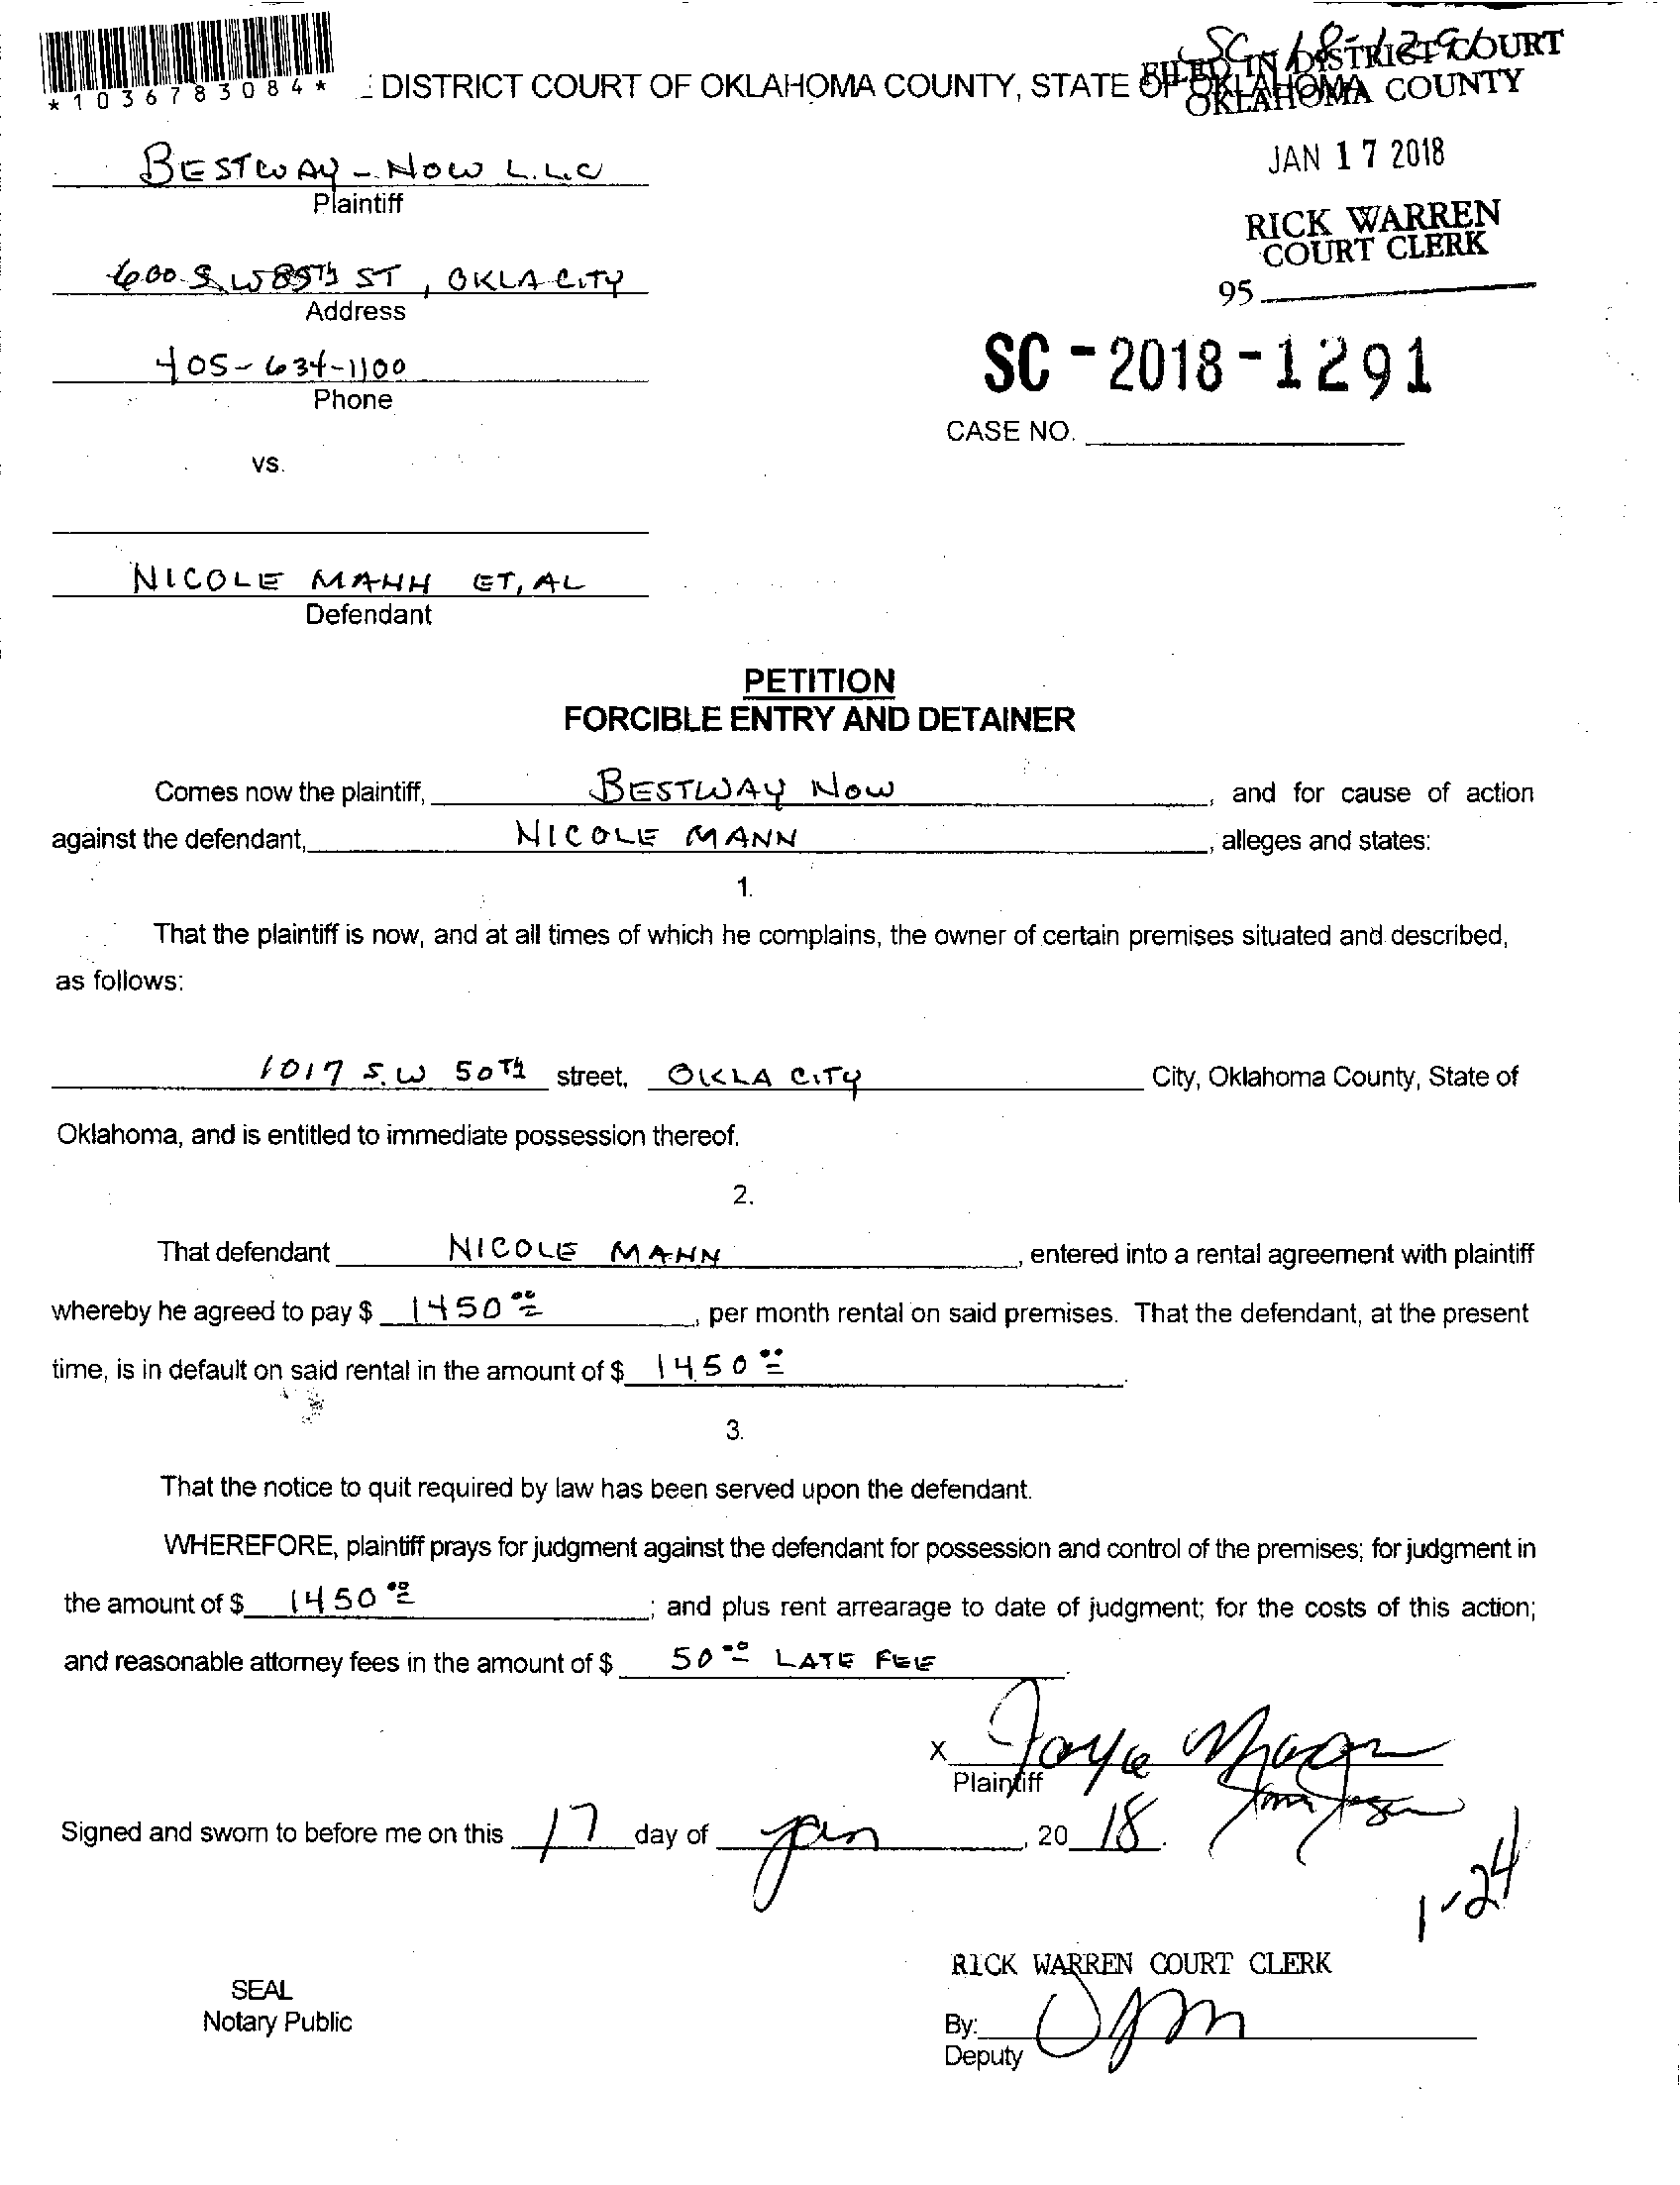 SC-18-1291
*1036783084*
DISTRICT COURT OF OKLAHOMA COUNTY, STATE OF OKLAHOMA
FILED IN DISTRICT COURT
OKLAHOMA COUNTY
JAN 17 2018
RICK WARREN
COURT CLERK
95
BESTWAY-NOW L.L.C
Plaintiff
600 S W 89Th ST, OKLA CITY
Address
405-634-1100
Phone
SC-2018-1291
CASE NO.
vs.
NICOLE MANN ET, AL
Defendant
PETITION
FORCIBLE ENTRY AND DETAINER
Comes now the plaintiff, BESTWAY NOW, and for cause of action
against the defendant, NICOLE MANN, alleges and states:
1.
That the plaintiff is now, and at all times of which he complains, the owner of certain premises situated and described,
as follows:
1017 S.W 50Th street, OKLA CITY City, Oklahoma County, State of
Oklahoma, and is entitled to immediate possession thereof.
2.
That defendant NICOLE MANN, entered into a rental agreement with plaintiff
whereby he agreed to pay $ 1450 00, per month rental on said premises. That the defendant, at the present
time, is in default on said rental in the amount of $ 1450 00.
3.
That the notice to quit required by law has been served upon the defendant.
WHEREFORE, plaintiff prays for judgment against the defendant for possession and control of the premises; for judgment in
the amount of $ 1450 00; and plus rent arrearage to date of judgment; for the costs of this action;
and reasonable attorney fees in the amount of $ 50 00 LATE FEE.
X
Plaintiff
Signed and sworn to before me on this 17 day of Jan, 20 18.
1-24
RICK WARREN COURT CLERK
SEAL
Notary Public
By:
Deputy